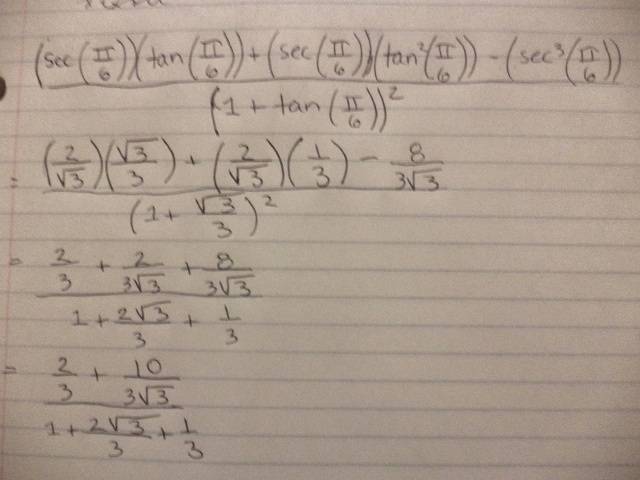 ((sec(π/6))(tan(π/6)) + (sec(π/6))(tan²(π/6)) - (sec³(π/6))) / (1 + tan(π/6))²
= ((2/√3)(√3/3) + (2/√3)(1/3) - 8/(3√3)) / (1 + √3/3)²
= (2/3 + 2/(3√3) + 8/(3√3)) / (1 + 2√3/3 + 1/3)
= (2/3 + 10/(3√3)) / (1 + 2√3/3 + 1/3)